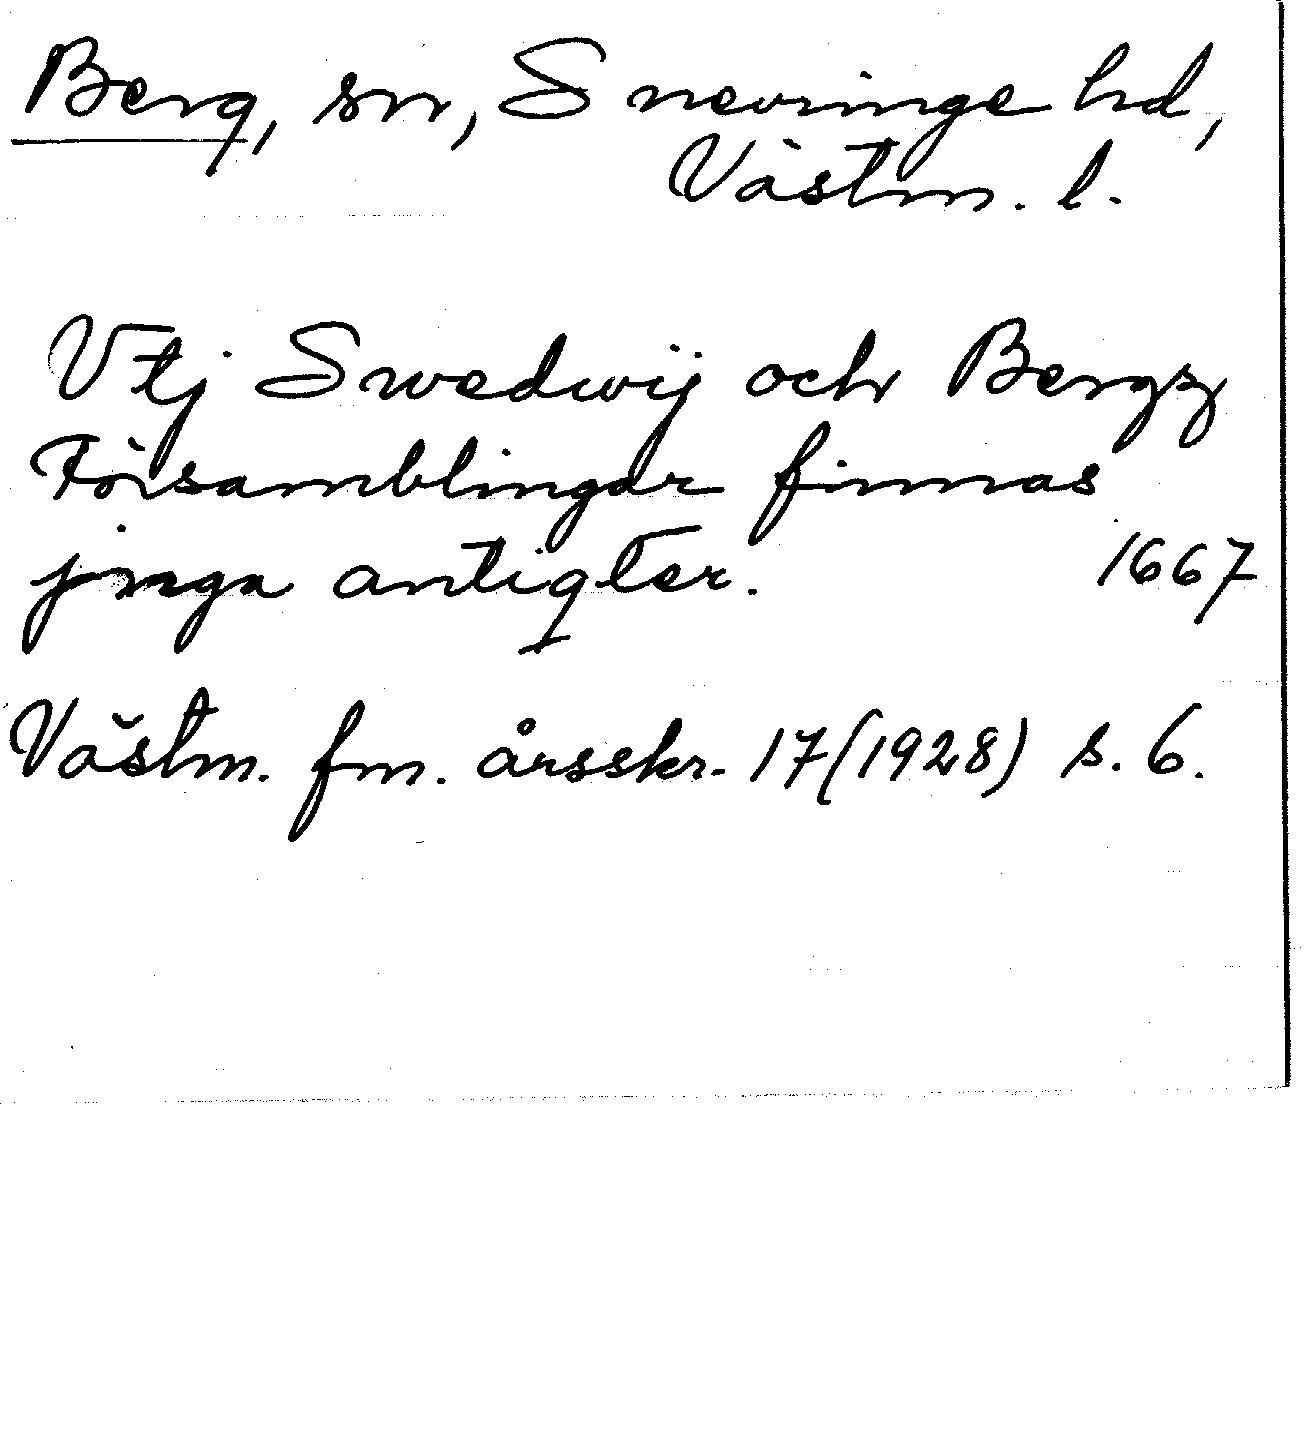 Berg, sn, Snevringe hd,
Västm. l.
Vtj Swedwij och Bergz
Församblingar finnas
jnga antiqter. 1667
Västm. fm. årsskr. 17(1928) s. 6.